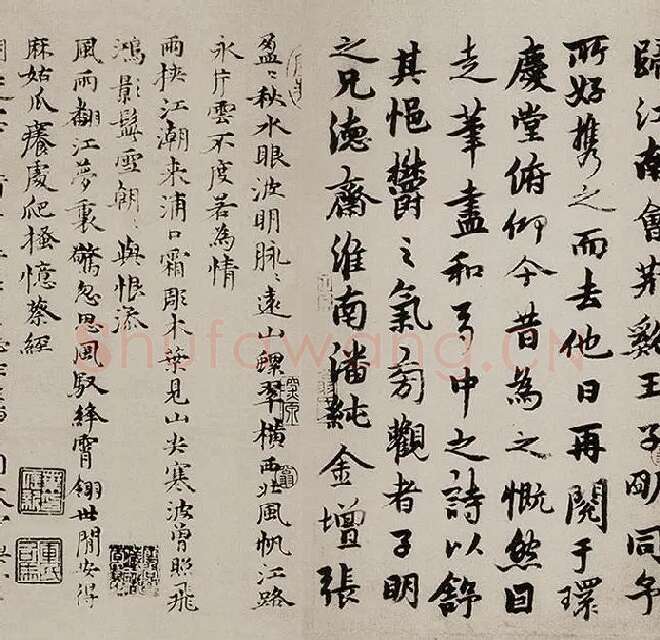 歸江南會荆谿王子明同予
所好携之而去他日再閱于環
慶堂俯仰今昔為之慨然因
走筆盡和弓中之詩以舒
其悒欝之氣旁觀者子明
之兄德齋淮南潘純金壇張
盈〻秋水眼波明脉〻遠山螺翠橫西北風帆江路
永片雲不度若為情
雨挾江潮來浦口霜彫木葉見山尖寒波曾照飛
鴻影鬢雪朝〻與恨添
風雨翻江夢裏驚忽思風馭絳霄翎世間安得
麻姑爪癢處爬搔憶蔡經
Shufawang.CN